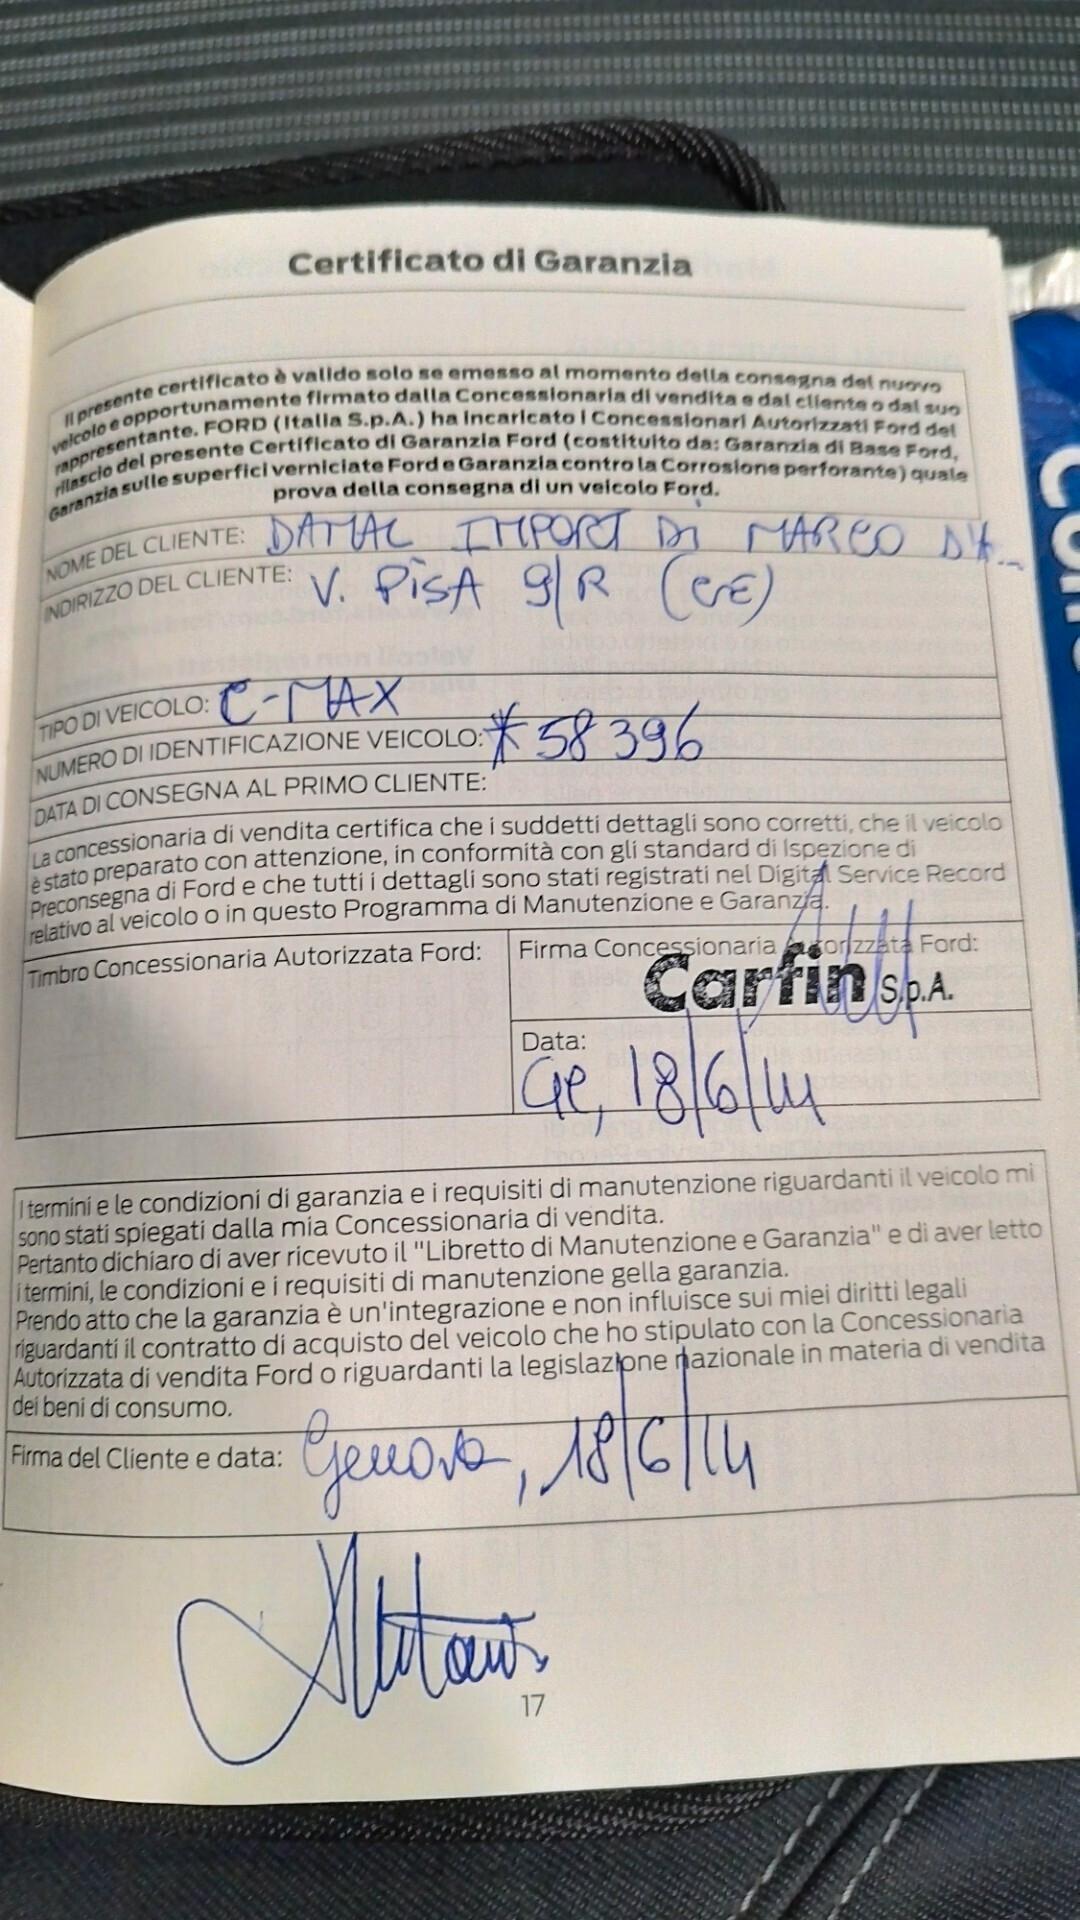 Certificato di Garanzia
Il presente certificato è valido solo se emesso al momento della consegna del nuovo
veicolo e opportunamente firmato dalla Concessionaria di vendita e dal cliente o dal suo
rappresentante. FORD (Italia S.p.A.) ha incaricato i Concessionari Autorizzati Ford del
rilascio del presente Certificato di Garanzia Ford (costituito da: Garanzia di Base Ford,
Garanzia sulle superfici verniciate Ford e Garanzia contro la Corrosione perforante) quale
prova della consegna di un veicolo Ford.
NOME DEL CLIENTE: DATIAL IMPORT DI MARCO
INDIRIZZO DEL CLIENTE: V. PISA 9/R (GE)
TIPO DI VEICOLO: C-MAX
NUMERO DI IDENTIFICAZIONE VEICOLO: *58396
DATA DI CONSEGNA AL PRIMO CLIENTE:
La concessionaria di vendita certifica che i suddetti dettagli sono corretti, che il veicolo
è stato preparato con attenzione, in conformità con gli standard di Ispezione di
Preconsegna di Ford e che tutti i dettagli sono stati registrati nel Digital Service Record
relativo al veicolo o in questo Programma di Manutenzione e Garanzia.
Timbro Concessionaria Autorizzata Ford:
Firma Concessionaria Autorizzata Ford:
Carfin S.p.A.
Data:
Ge, 18/6/14
I termini e le condizioni di garanzia e i requisiti di manutenzione riguardanti il veicolo mi
sono stati spiegati dalla mia Concessionaria di vendita.
Pertanto dichiaro di aver ricevuto il "Libretto di Manutenzione e Garanzia" e di aver letto
i termini, le condizioni e i requisiti di manutenzione gella garanzia.
Prendo atto che la garanzia è un'integrazione e non influisce sui miei diritti legali
riguardanti il contratto di acquisto del veicolo che ho stipulato con la Concessionaria
Autorizzata di vendita Ford o riguardanti la legislazione nazionale in materia di vendita
dei beni di consumo.
Firma del Cliente e data: Genova, 18/6/14
17